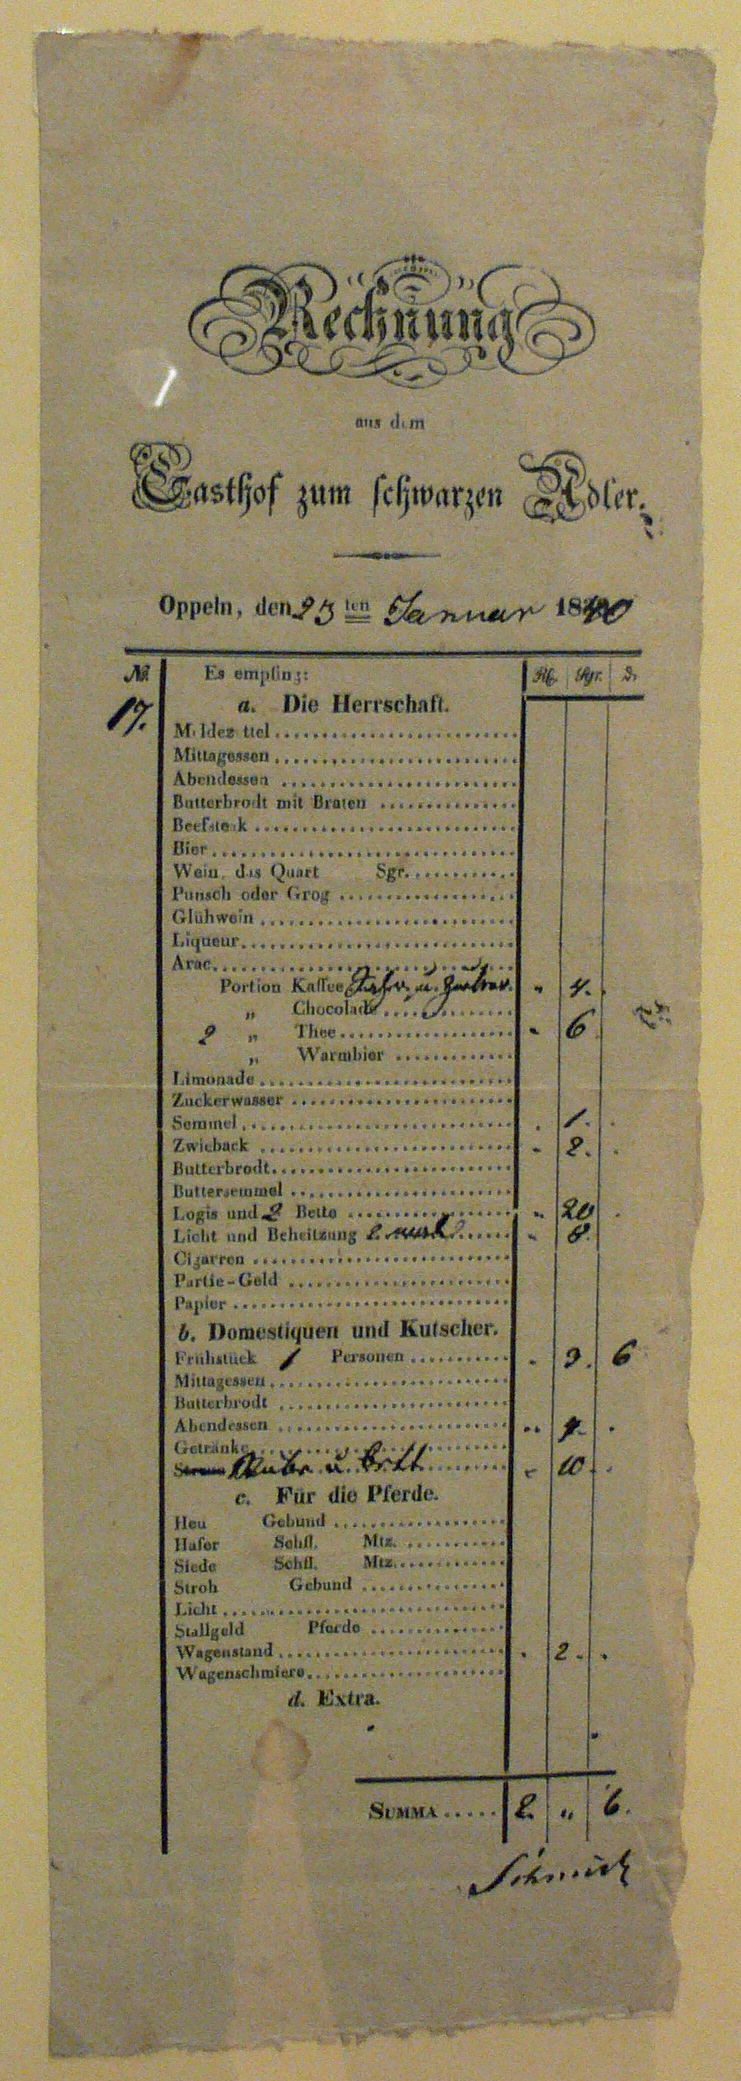 Rechnung
aus dem
Gasthof zum schwarzen Adler.
Oppeln, den 23 ten Januar 1840
No. Es empfing: Rth. Sgr. D.
17. a. Die Herrschaft.
Mittagessen
Abendessen
Butterbrodt mit Braten
Beefsteak
Bier
Wein, das Quart Sgr.
Punsch oder Grog
Glühwein
Liqueur
Arac
Portion Kaffee " 4. .
" Chocolade
2 " Thee " 6
" Warmbier
Limonade
Zuckerwasser
Semmel . 1. .
Zwieback " 2. .
Butterbrodt
Buttersemmel
Logis und 2 Bette " 20 .
Licht und Beheitzung 2 " 8.
Cigarren
Partie-Geld
Papier
b. Domestiquen und Kutscher.
Frühstück 1 Personen . 9. 6
Mittagessen
Butterbrodt
Abendessen " 4. .
Getränke
u. Bett " 10. .
c. Für die Pferde.
Heu Gebund
Hafer Schfl. Mtz.
Siede Schfl. Mtz.
Stroh Gebund
Licht
Stallgeld Pferde
Wagenstand . 2. .
Wagenschmiere
d. Extra.
Summa 2. " 6.